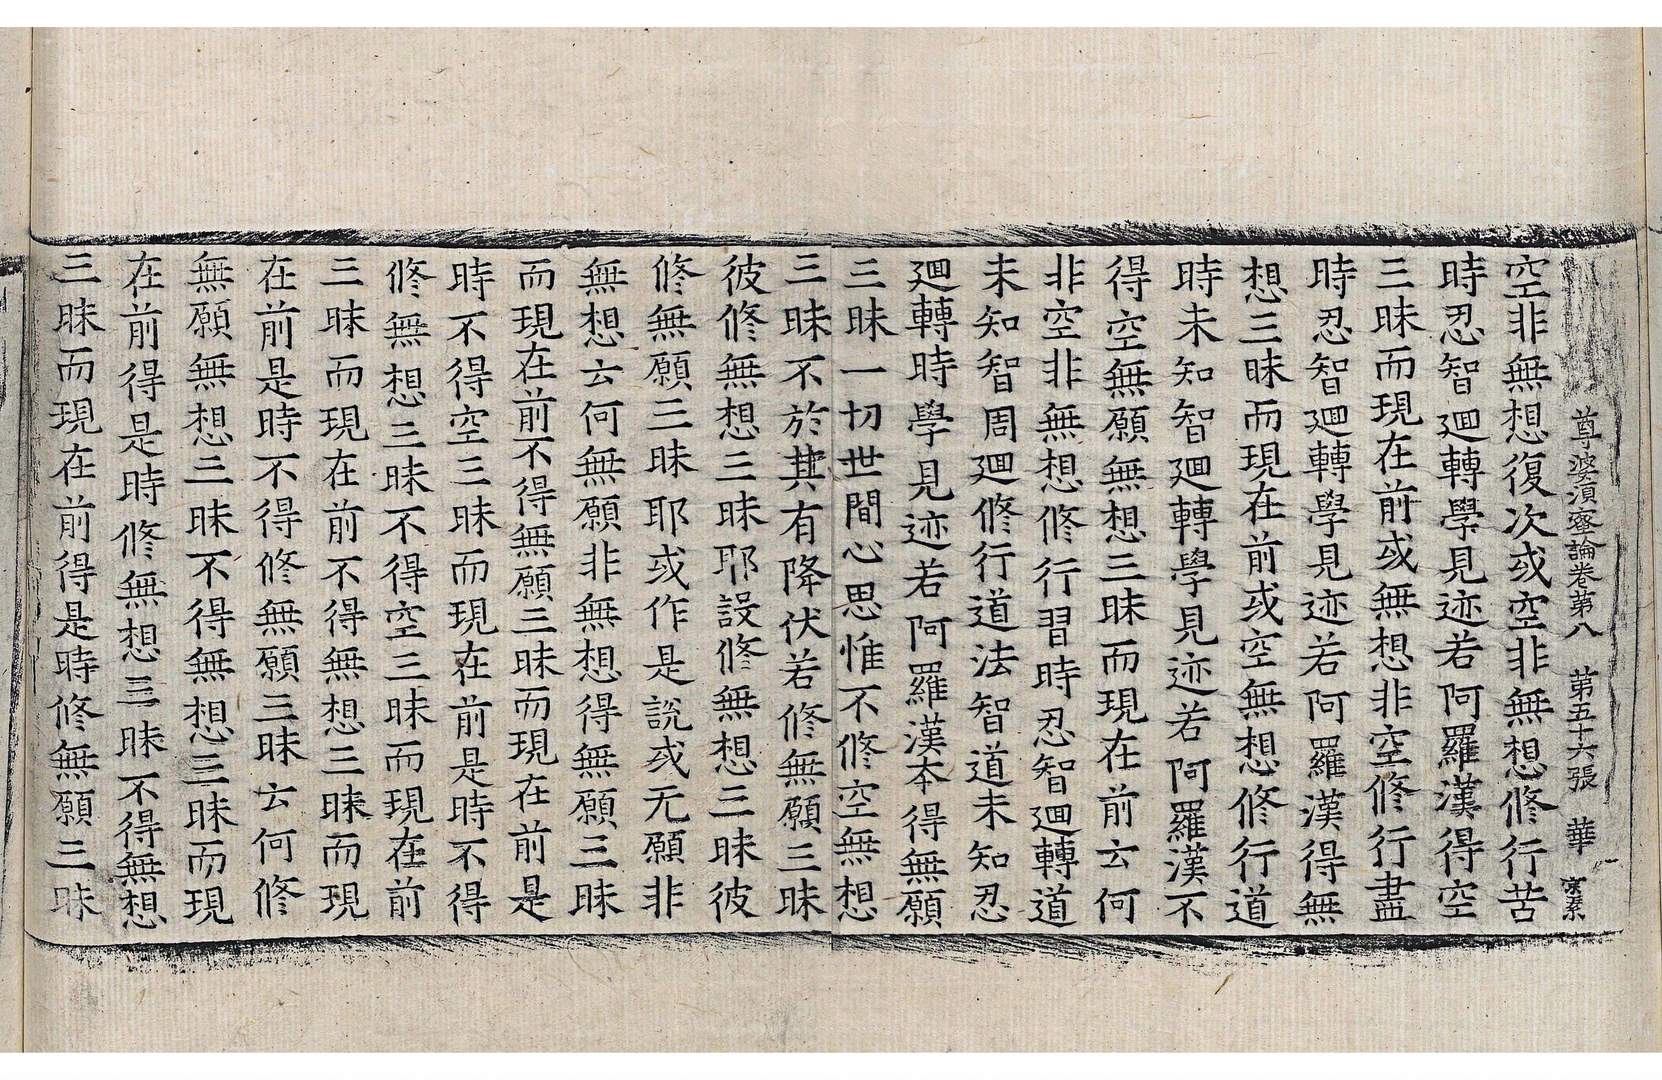 尊婆湏蜜論卷第八 第五十六張 華
空非無想復次或空非無想修行苦
時忍智廻轉學見迹若阿羅漢得空
三昧而現在前或無想非空修行盡
時忍智廻轉學見迹若阿羅漢得無
想三昧而現在前或空無想修行道
時未知智廻轉學見迹若阿羅漢不
得空無願無想三昧而現在前云何
非空非無想修行習時忍智廻轉道
未知智周廻修行道法智道未知忍
廻轉時學見迹若阿羅漢本得無願
三昧一切世間心思惟不修空無想
三昧不於其有降伏若修無願三昧
彼修無想三昧耶設修無想三昧彼
修無願三昧耶或作是說或无願非
無想云何無願非無想得無願三昧
而現在前不得無願三昧而現在前是
時不得空三昧而現在前是時不得
修無想三昧不得空三昧而現在前
三昧而現在前不得無想三昧而現
在前是時不得修無願三昧云何修
無願無想三昧不得無想三昧而現
在前得是時修無想三昧不得無想
三昧而現在前得是時修無願三昧